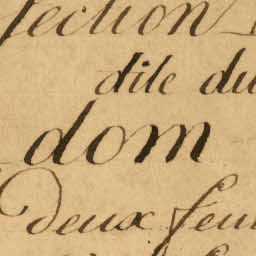 section
dite du
dom
Deux feui